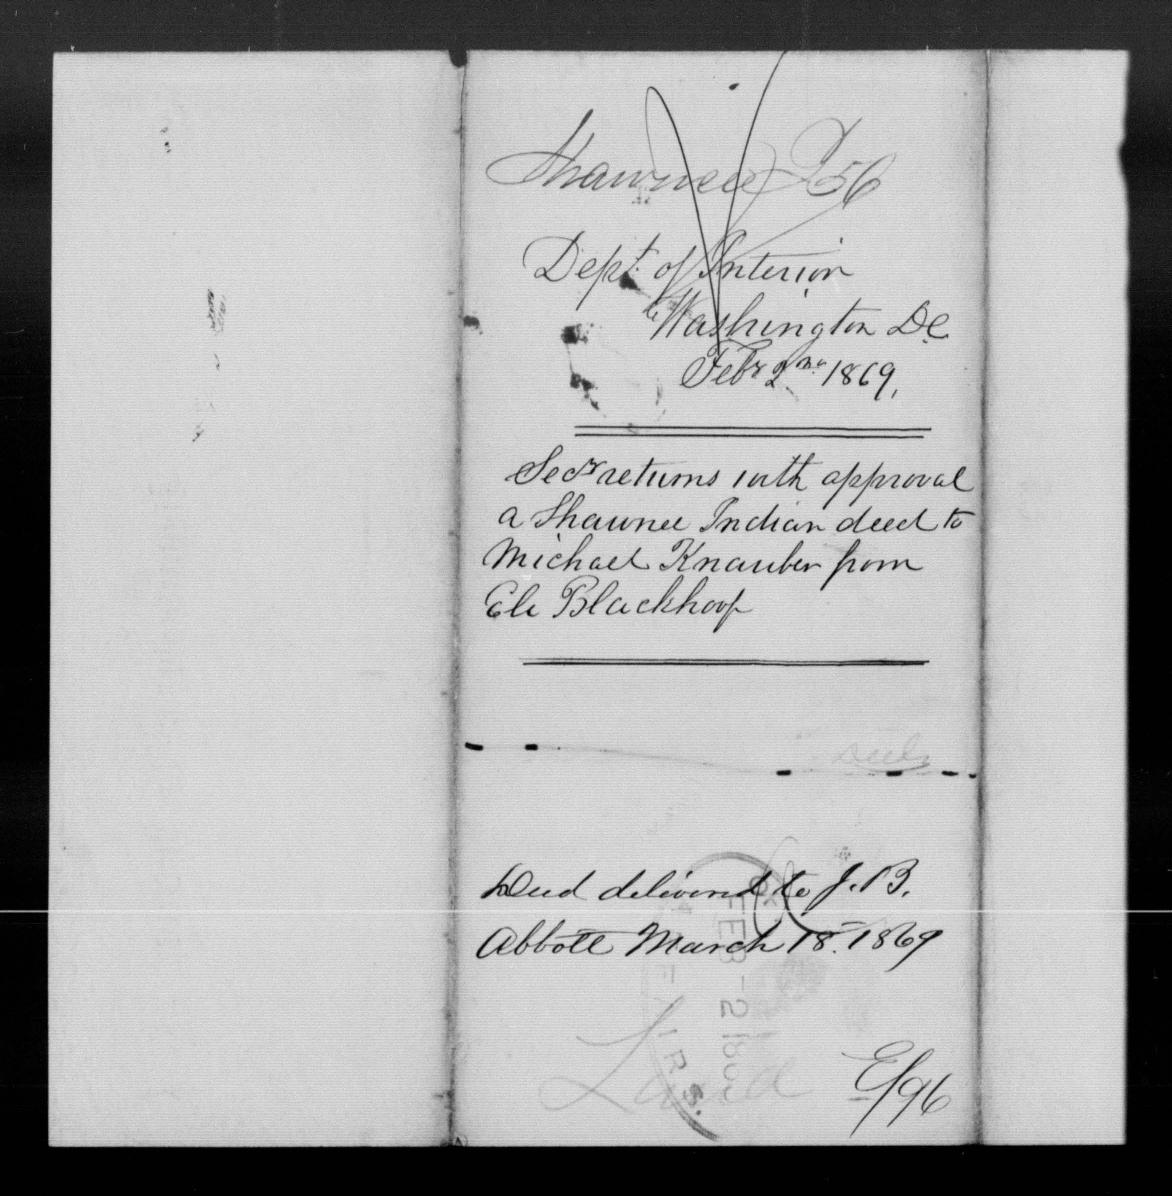 Shawnee I 56
Dept. of Interior
Washington DC
Feby 2nd 1869,
Secy returns with approval
a Shawnee Indian deed to
Michael Knauber from
Eli Blackhoof
Deed
Deed delivered to J. B.
Abbott March 18. 1869
FEB -2 186
Land
E/96